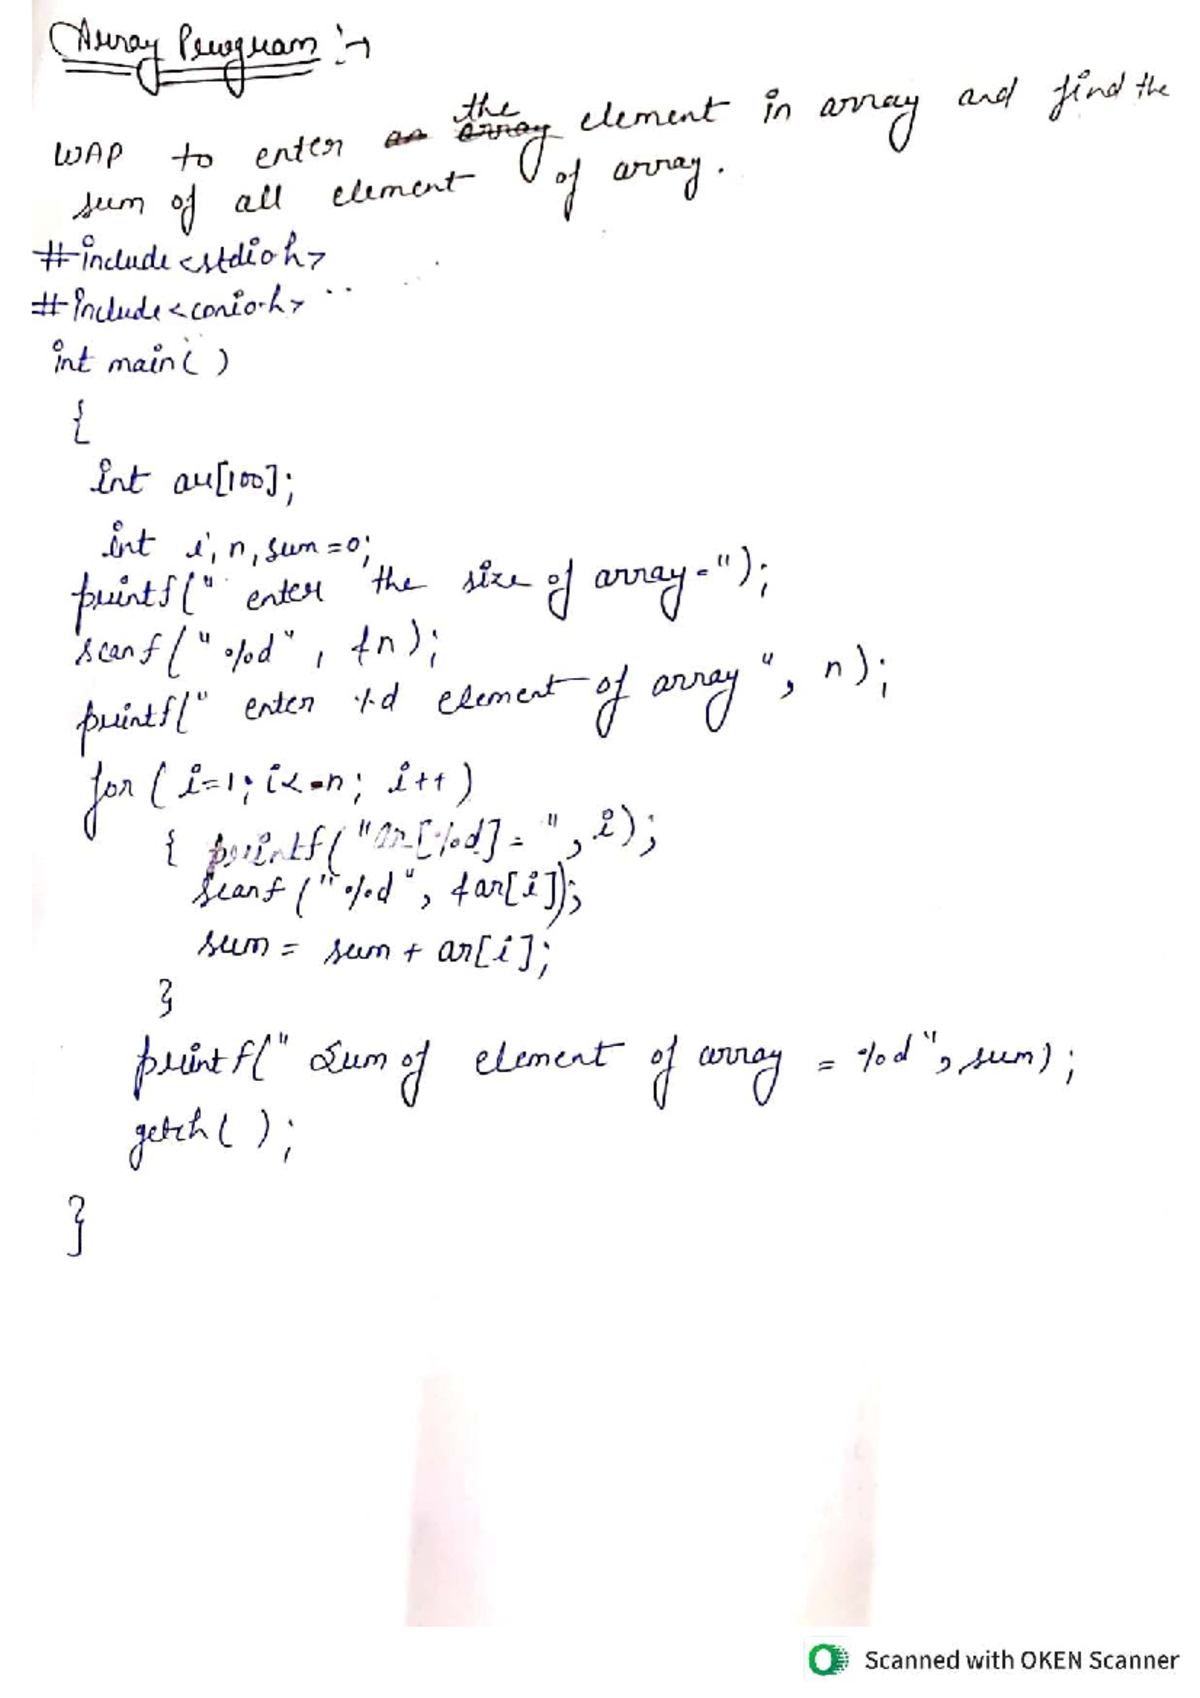 Array Program :→
WAP to enter the element in array and find the
sum of all element of array.
#include<stdio.h>
#include<conio.h>
int main( )
{
int ar[100];
int i, n, sum=0;
printf(" enter the size of array=");
scanf("%d", &n);
printf(" enter %d element of array", n);
for ( i=1; i<=n; i++ )
{ printf("ar[%d]= ", i);
scanf("%d", &ar[i]);
sum = sum + ar[i];
}
printf(" Sum of element of array = %d", sum);
getch( );
}
Scanned with OKEN Scanner